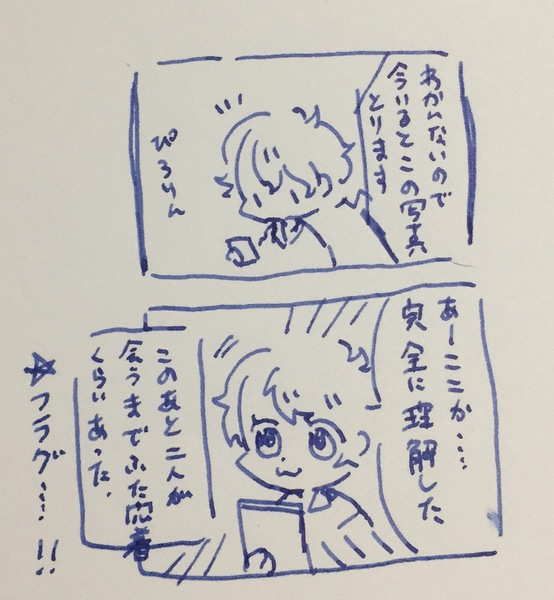 わかんないので
今いるとこの写真
とります
ぴろりん
あーここか…
完全に理解した
このあと二人が
会うまでふた悶着
くらいあった.
☆フラグ…!!